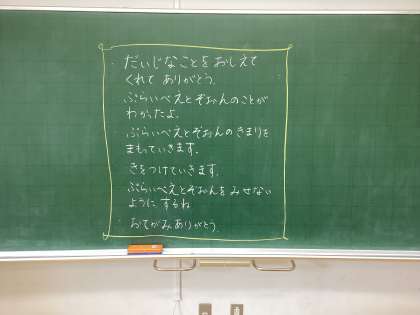 ・だいじなことをおしえて
くれて ありがとう。
・ぷらいべえとぞおんのことが
わかったよ。
・ぷらいべえとぞおんのきまりを
まもっていきます。
・きをつけていきます。
・ぷらいべえとぞおんをみせない
ようにするね
・おてがみありがとう。